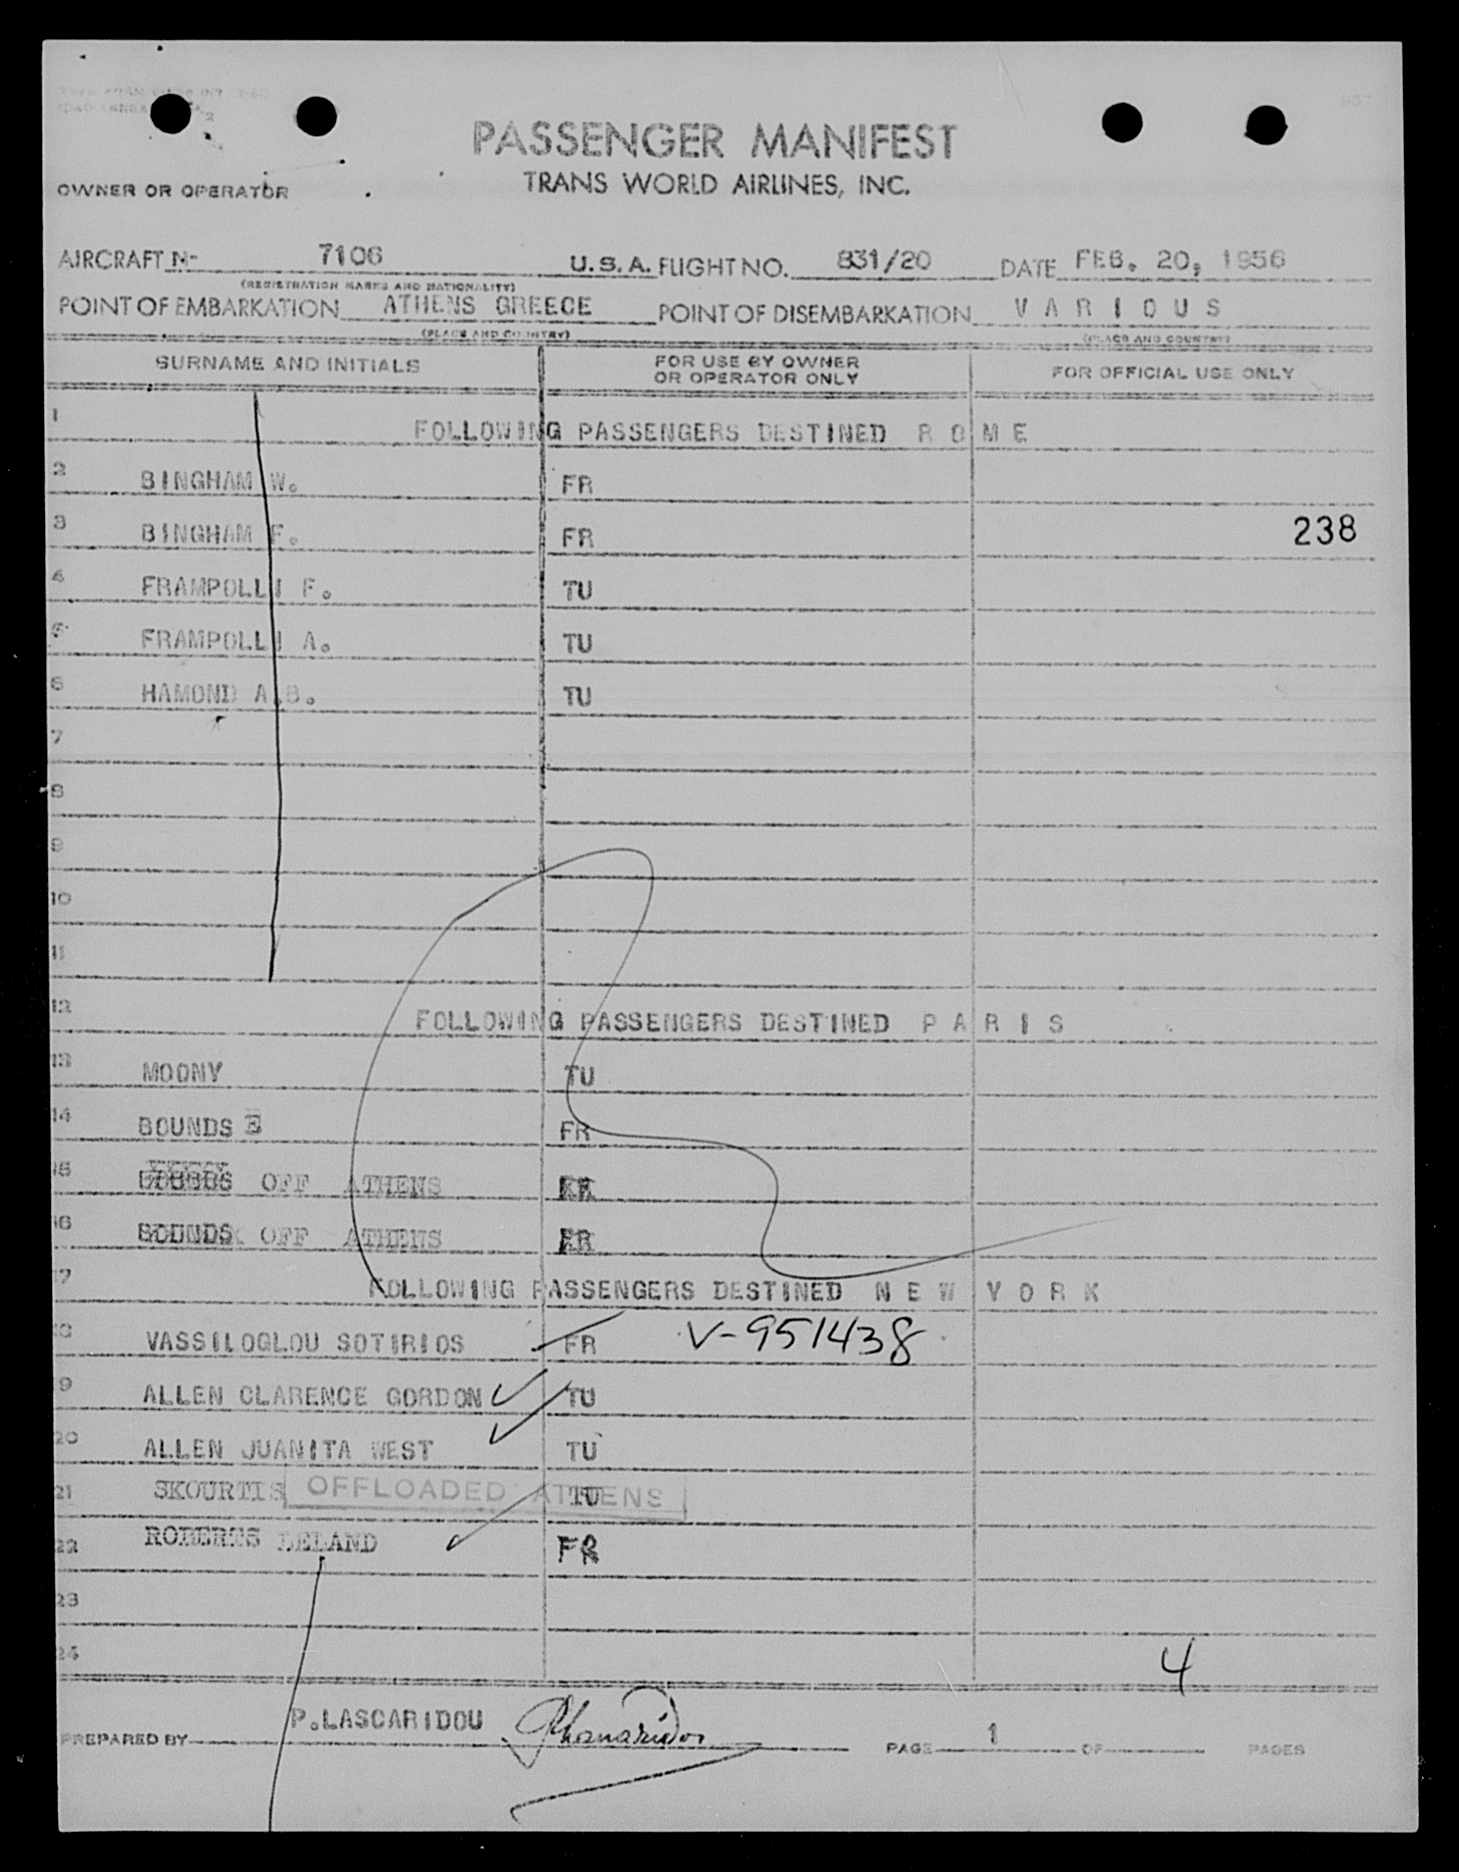 PASSENGER MANIFEST
TRANS WORLD AIRLINES, INC.
OWNER OR OPERATOR
AIRCRAFT N- 7106 U.S.A. FLIGHT NO. 831/20 DATE FEB. 20, 1956
(REGISTRATION MARKS AND NATIONALITY)
POINT OF EMBARKATION ATHENS GREECE POINT OF DISEMBARKATION V A R I O U S
(PLACE AND COUNTRY) (PLACE AND COUNTRY)
SURNAME AND INITIALS FOR USE BY OWNER OR OPERATOR ONLY FOR OFFICIAL USE ONLY
1 FOLLOWING PASSENGERS DESTINED R O M E
2 BINGHAM W. FR
3 BINGHAM F. FR 238
4 FRAMPOLLI F. TU
5 FRAMPOLLI A. TU
6 HAMOND A.B. TU
7
8
9
10
11
12 FOLLOWING PASSENGERS DESTINED P A R I S
13 MOONY TU
14 BOUNDS E FR
15 OFF ATHENS
16 BOUNDS OFF ATHENS FR
17 FOLLOWING PASSENGERS DESTINED N E W Y O R K
18 VASSILOGLOU SOTIRIOS FR V-951438
19 ALLEN CLARENCE GORDON TU
20 ALLEN JUANITA WEST TU
21 SKOURTIS OFFLOADED ATHENS TU
22 ROBERTS LELAND FR
23
24
4
PREPARED BY P.LASCARIDOU PAGE 1 OF PAGES